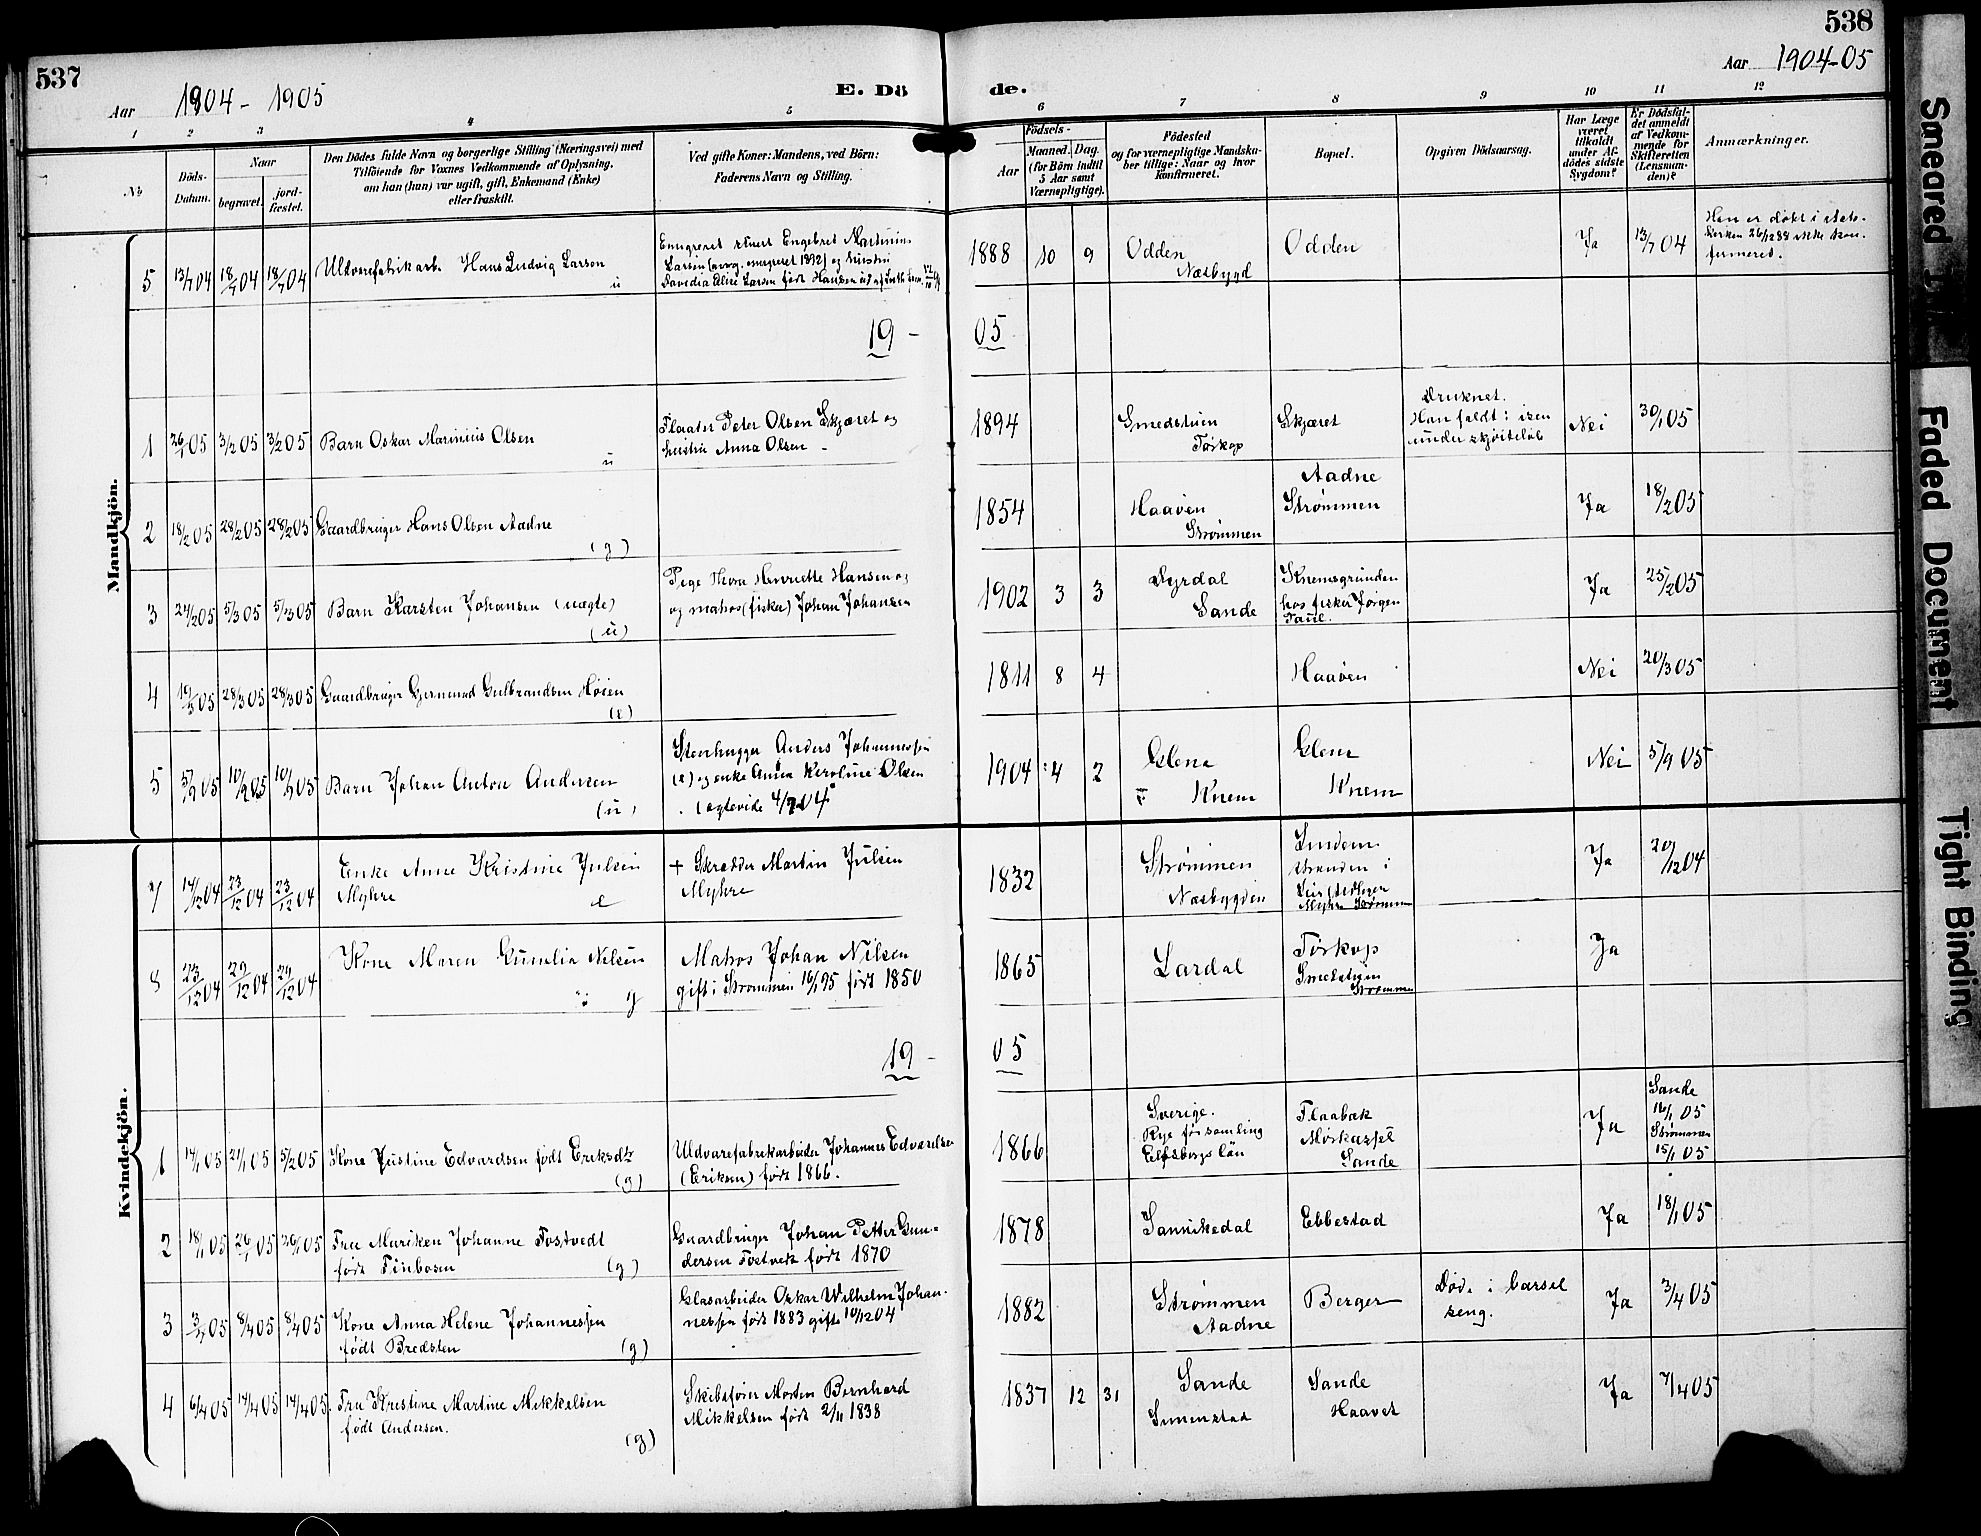 537
Aar 1904 - 1905
E. Dö
de.
538
Aar 1904-05
1 2 3 4 5 6 7 8 9 10 11 12
No
Döds-
Datum.
Naar
begravet.
jord-
fæstet.
Den Dödes fulde Navn og borgerlige Stilling (Næringsvei) med
Tilföiende for Voxnes Vedkommende af Oplysning,
om han (hun) var ugift, gift, Enkemand (Enke)
eller fraskilt.
Ved gifte Koner: Mandens, ved Börn:
Faderens Navn og Stilling.
Födsels-
Aar
Maaned. Dag.
(for Börn indtil
5 Aar samt
Værnepligtige).
Födested
og for værnepligtige Mandska-
ber tillige: Naar og hvor
konfirmeret.
Bopæl.
Opgiven Dödsaarsag.
Har Læge
været
tilkaldt
under Af-
dödes sidste
Sygdom?
Er Dödsfal-
det anmeldt
af Vedkom-
mende for
Skifteretten
(Lensman-
den)?
Anmærkninger.
Mandkjön.
5 13/7 04 18/7 04 18/7 04 Uldvarefabrikarb. Hans Ludvig Larsen
u
Emigreret Engebret Martinius
Larsen emigreret 1892) og hustru
1888 10 9 Odden
Næsbygd
Odden
Ja 13/7 04
Han er døbt i
kirken 26/12 88 ikke kon-
firmered.
19 - 05
1 26/1 05 3/2 05 3/2 05 Barn Oskar Marinius Olsen
u
Flaater Peter Olsen Skjæret og
hustru Anna Olsen -
1894 Smedstuen
Tørkop
Skjæret
Druknet.
Han faldt i isen
under skøiteløb
Nei 30/1 05
2 18/2 05 28/2 05 28/2 05 Gaardbruger Hans Olsen Aadne
(g)
1854 Haaven
Strømmen
Aadne
Strømmen
Ja 18/2 05
3 24/2 05 5/3 05 5/3 05 Barn Karsten Johansen (uægte)
(u)
Pige Thora Henriette Hansen og
og matros (fisker) Johan Johansen
1902 3 3 Dyrdal
Sande
Knemsgrunden
hos fisker Jørgen
Faul.
Ja 25/2 05
4 19/3 05 28/3 05 28/3 05 Gaardbruger Gjermund Gulbrandsen Høien
(e)
1811 8 4 Haaven
Nei 20/3 05
5 5/9 05 10/9 05 10/9 05 Barn Johan Anton Andersen
(u)
Stenhugger Anders Johannessen
(e) og enke Anna Karoline Olsen
(ægtevide 4/7 04
1904 4 2 Glena
Knem
Glena
Knem
Nei 5/9 05
Kvindekjön.
7 14/12 04 23/12 04 23/12 04 Enke Anne Kristine Julsen
Myhre e
+ Skrædder Martin Julsen
Myhre
1832 Strømmen
Næsbygden
stranden i
Myhre Strømmen
Ja 20/12 04
8 23/12 04 29/12 04 29/12 04 Kone Maren Gunelia Nilsen
g
Matros Johan Nilsen
gift i Strømmen 16/1 95 født 1850
1865 Lardal
Tørkop
Smedstuen
Strømmen
Ja
19 - 05
1 14/1 05 21/1 05 5/2 05 Kone Justine Edvardsen født Eriksdtr
(g)
Uldvarefabrikarbeider Johannes Edvardsen
(Eriksen) født 1866.
1866 Sverige.
Rye forsamling
Elfsborgs län
Flaabæk
Mørkassel
Sande
Ja
Sande
16/1 05
Strømmen
15/1 05
2 18/1 05 26/1 05 26/1 05 Fru Mariken Johanne Fostvedt
født Finbosen (g)
Gaardbruger Johan Petter Gun-
dersen Fostvedt født 1870
1878 Sannikedal
Ebbestad
Ja 18/1 05
3 3/4 05 8/4 05 8/4 05 Kone Anna Helene Johannessen
født Bredsten (g)
Glasarbeider Oskar Wilhelm Johan-
nessen født 1883 gift 10/12 04
1882 Strømmen
Aadne
Berger
Død i barsel
seng.
Ja 3/4 05
4 6/4 05 14/4 05 14/4 05 Fru Kristine Martine Mikkelsen
født Andersen.
(g)
Skibsfører Morten Bernhard
Mikkelsen født 2/11 1838
1837 12 31 Sande
Simenstad
Sande
Haavet
Ja 7/4 05
Smeared
Faded Document
Tight Binding